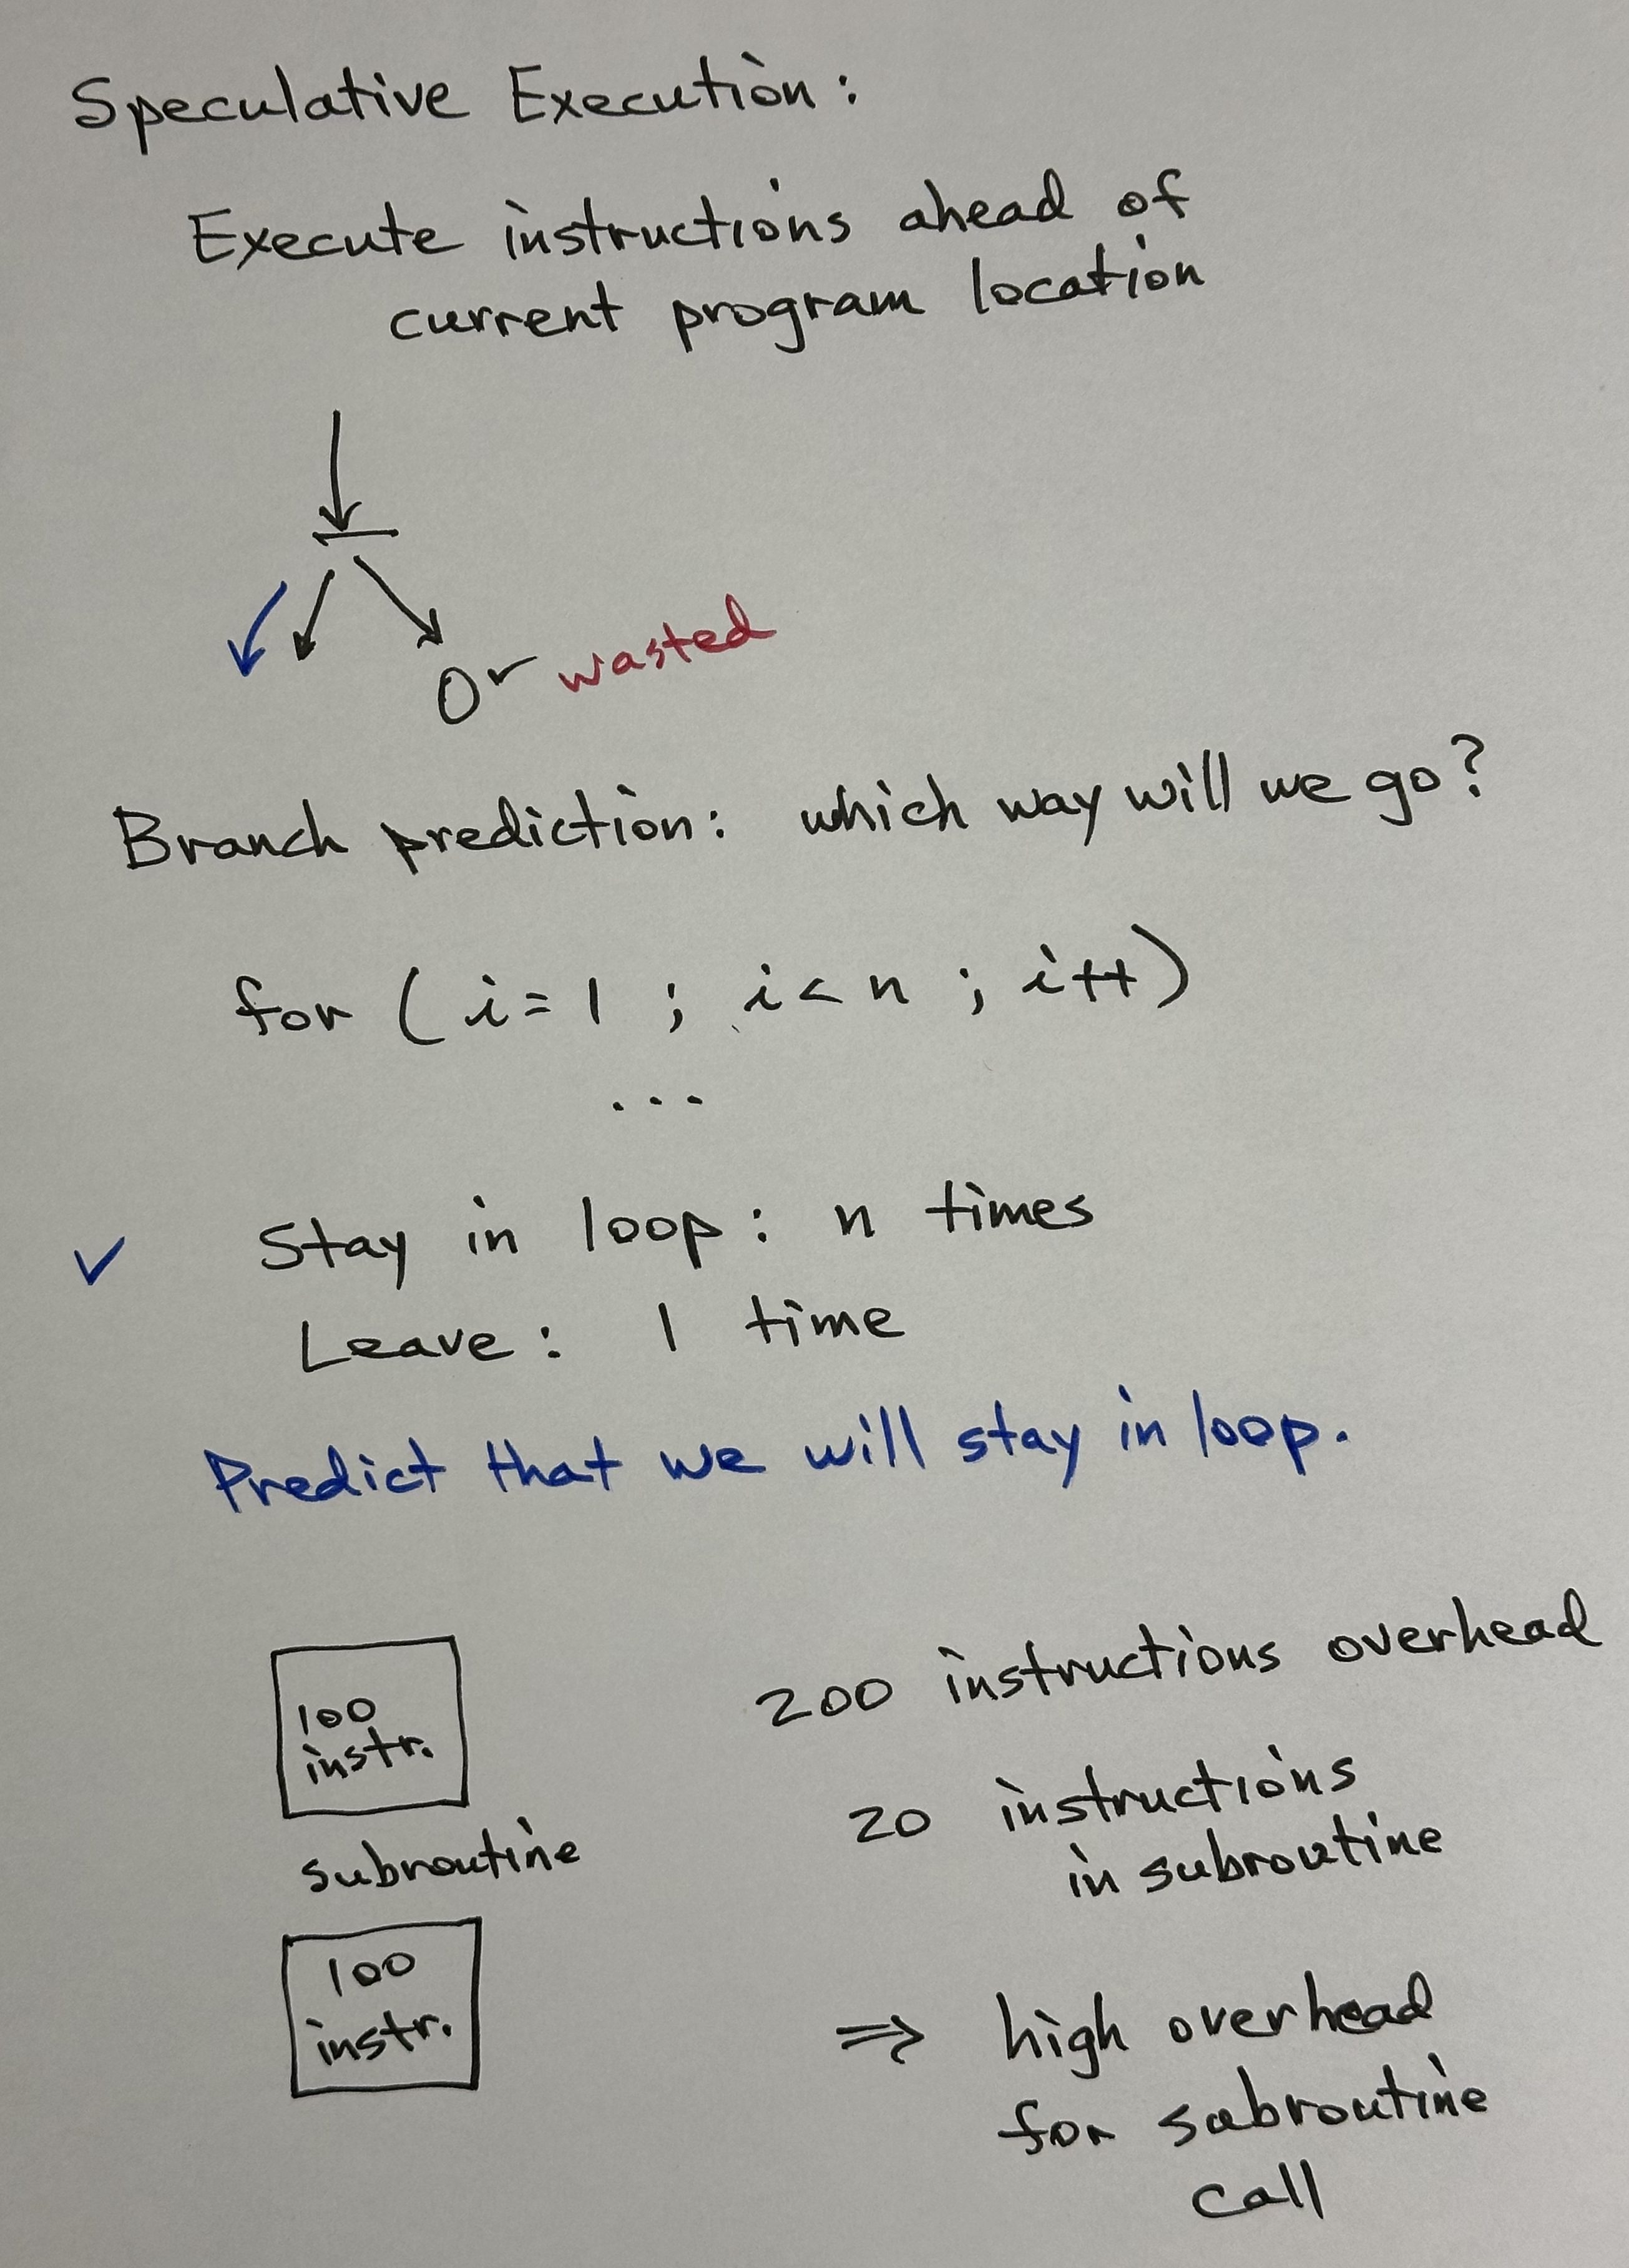 Speculative Execution:
Execute instructions ahead of
current program location
Or wasted
Branch prediction: which way will we go?
for (i=1 ; i<n ; i++)
...
✓ Stay in loop: n times
Leave: 1 time
Predict that we will stay in loop.
100
instr.
subroutine
100
instr.
200 instructions overhead
20 instructions
in subroutine
⇒ high overhead
for subroutine
call